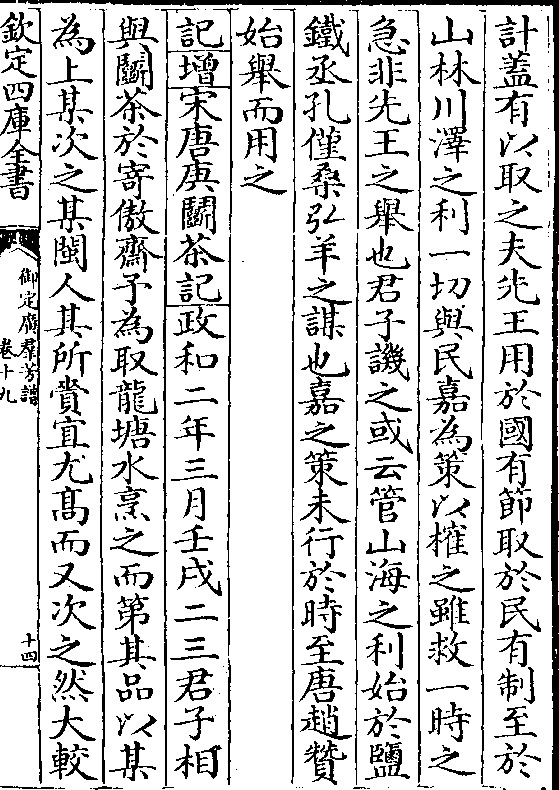 計蓋有以取之夫先王用於國有節取於民有制至於
山林川澤之利一切與民嘉為策以榷之雖救一時之
急非先王之舉也君子譏之或云管山海之利始於鹽
鐵丞孔僅桑弘羊之謀也嘉之策未行於時至唐趙贊
始舉而用之
記增宋唐庚鬭茶記政和二年三月壬戌二三君子相
與鬭茶於寄傲齋予為取龍塘水烹之而第其品以某
為上某次之某閩人其所賫宜尤髙而又次之然大較
欽定四庫全書
御定廣羣芳譜
卷十九
十四